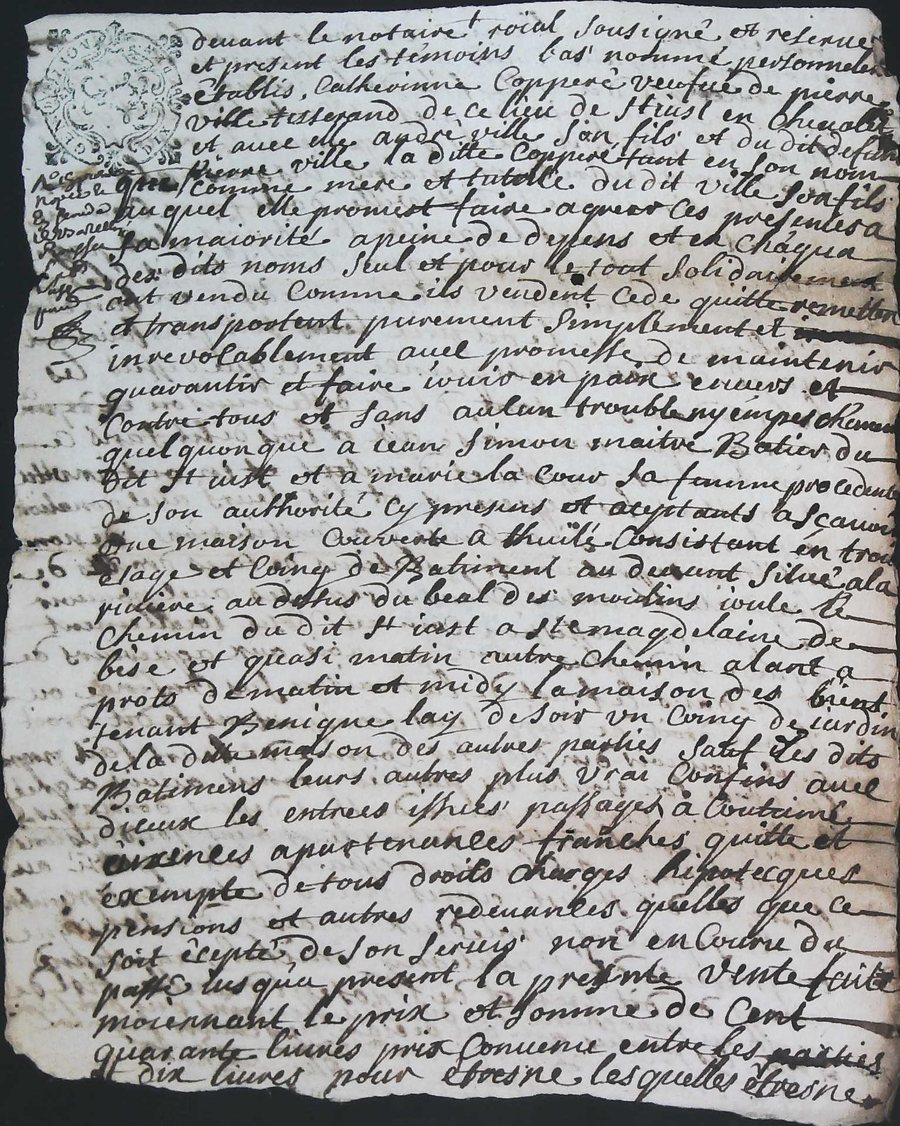 devant le notaire roial sousigné et reservé
et present les témoins bas nommé personnelem
établis, Catherinne Copperé veufue de pierre
ville tisserand de ce lieu de St iust en Chevalet
et avec me andré ville son fils et du dit defun
pierre ville la ditte Copperé tant en son nom
que comme mere et tutelle du dit ville son fils
au quel elle promest faire agreer ces presentes a
sa maiorité apeine de depens et en châqun
des dits noms seul et pour le tout solidairement
ont vendu Comme ils vendent cede quitte remetten
et transportent purement simplement et
inrevocablement avec promesse de maintenir
guarantir et faire iouir en paix envers et
Contre tous et sans aucun trouble ny émpeschement
quelquonque a iean simon maitre Batier du
dit St iust et a marie la Cour sa famme procedente
de son authorité cy presens et aceptants ascavoir
une maison Couverte a thuilé Consistant en trois
étage et Coing de Batiment au devant situé a la
riviere au desus du beal des moulins ioute le
Chemin du dit St iust a Ste magdelaine de
bise et quasi matin autre chemin alant a
prots de matin et midy la maison des biens
tenant Benigne lay de soir un Coing de iardin
de la ditte maison des autres parties sauf des dits
Batimens leurs autres plus vrai Confins avec
diceux les entrees issues passages a Coutumé
aixences apartenances franches quitte et
éxempte de tous droits charges hipotecques
pensions et autres redevances quelles que ce
soit écepté de son servis non en Couru du
passé iusqu'a present la présente vente faite
moiennant le prix et somme de Cent
quarante livres prix Convenu entre les parties
et dix livres pour etresne lesquelles êtresne